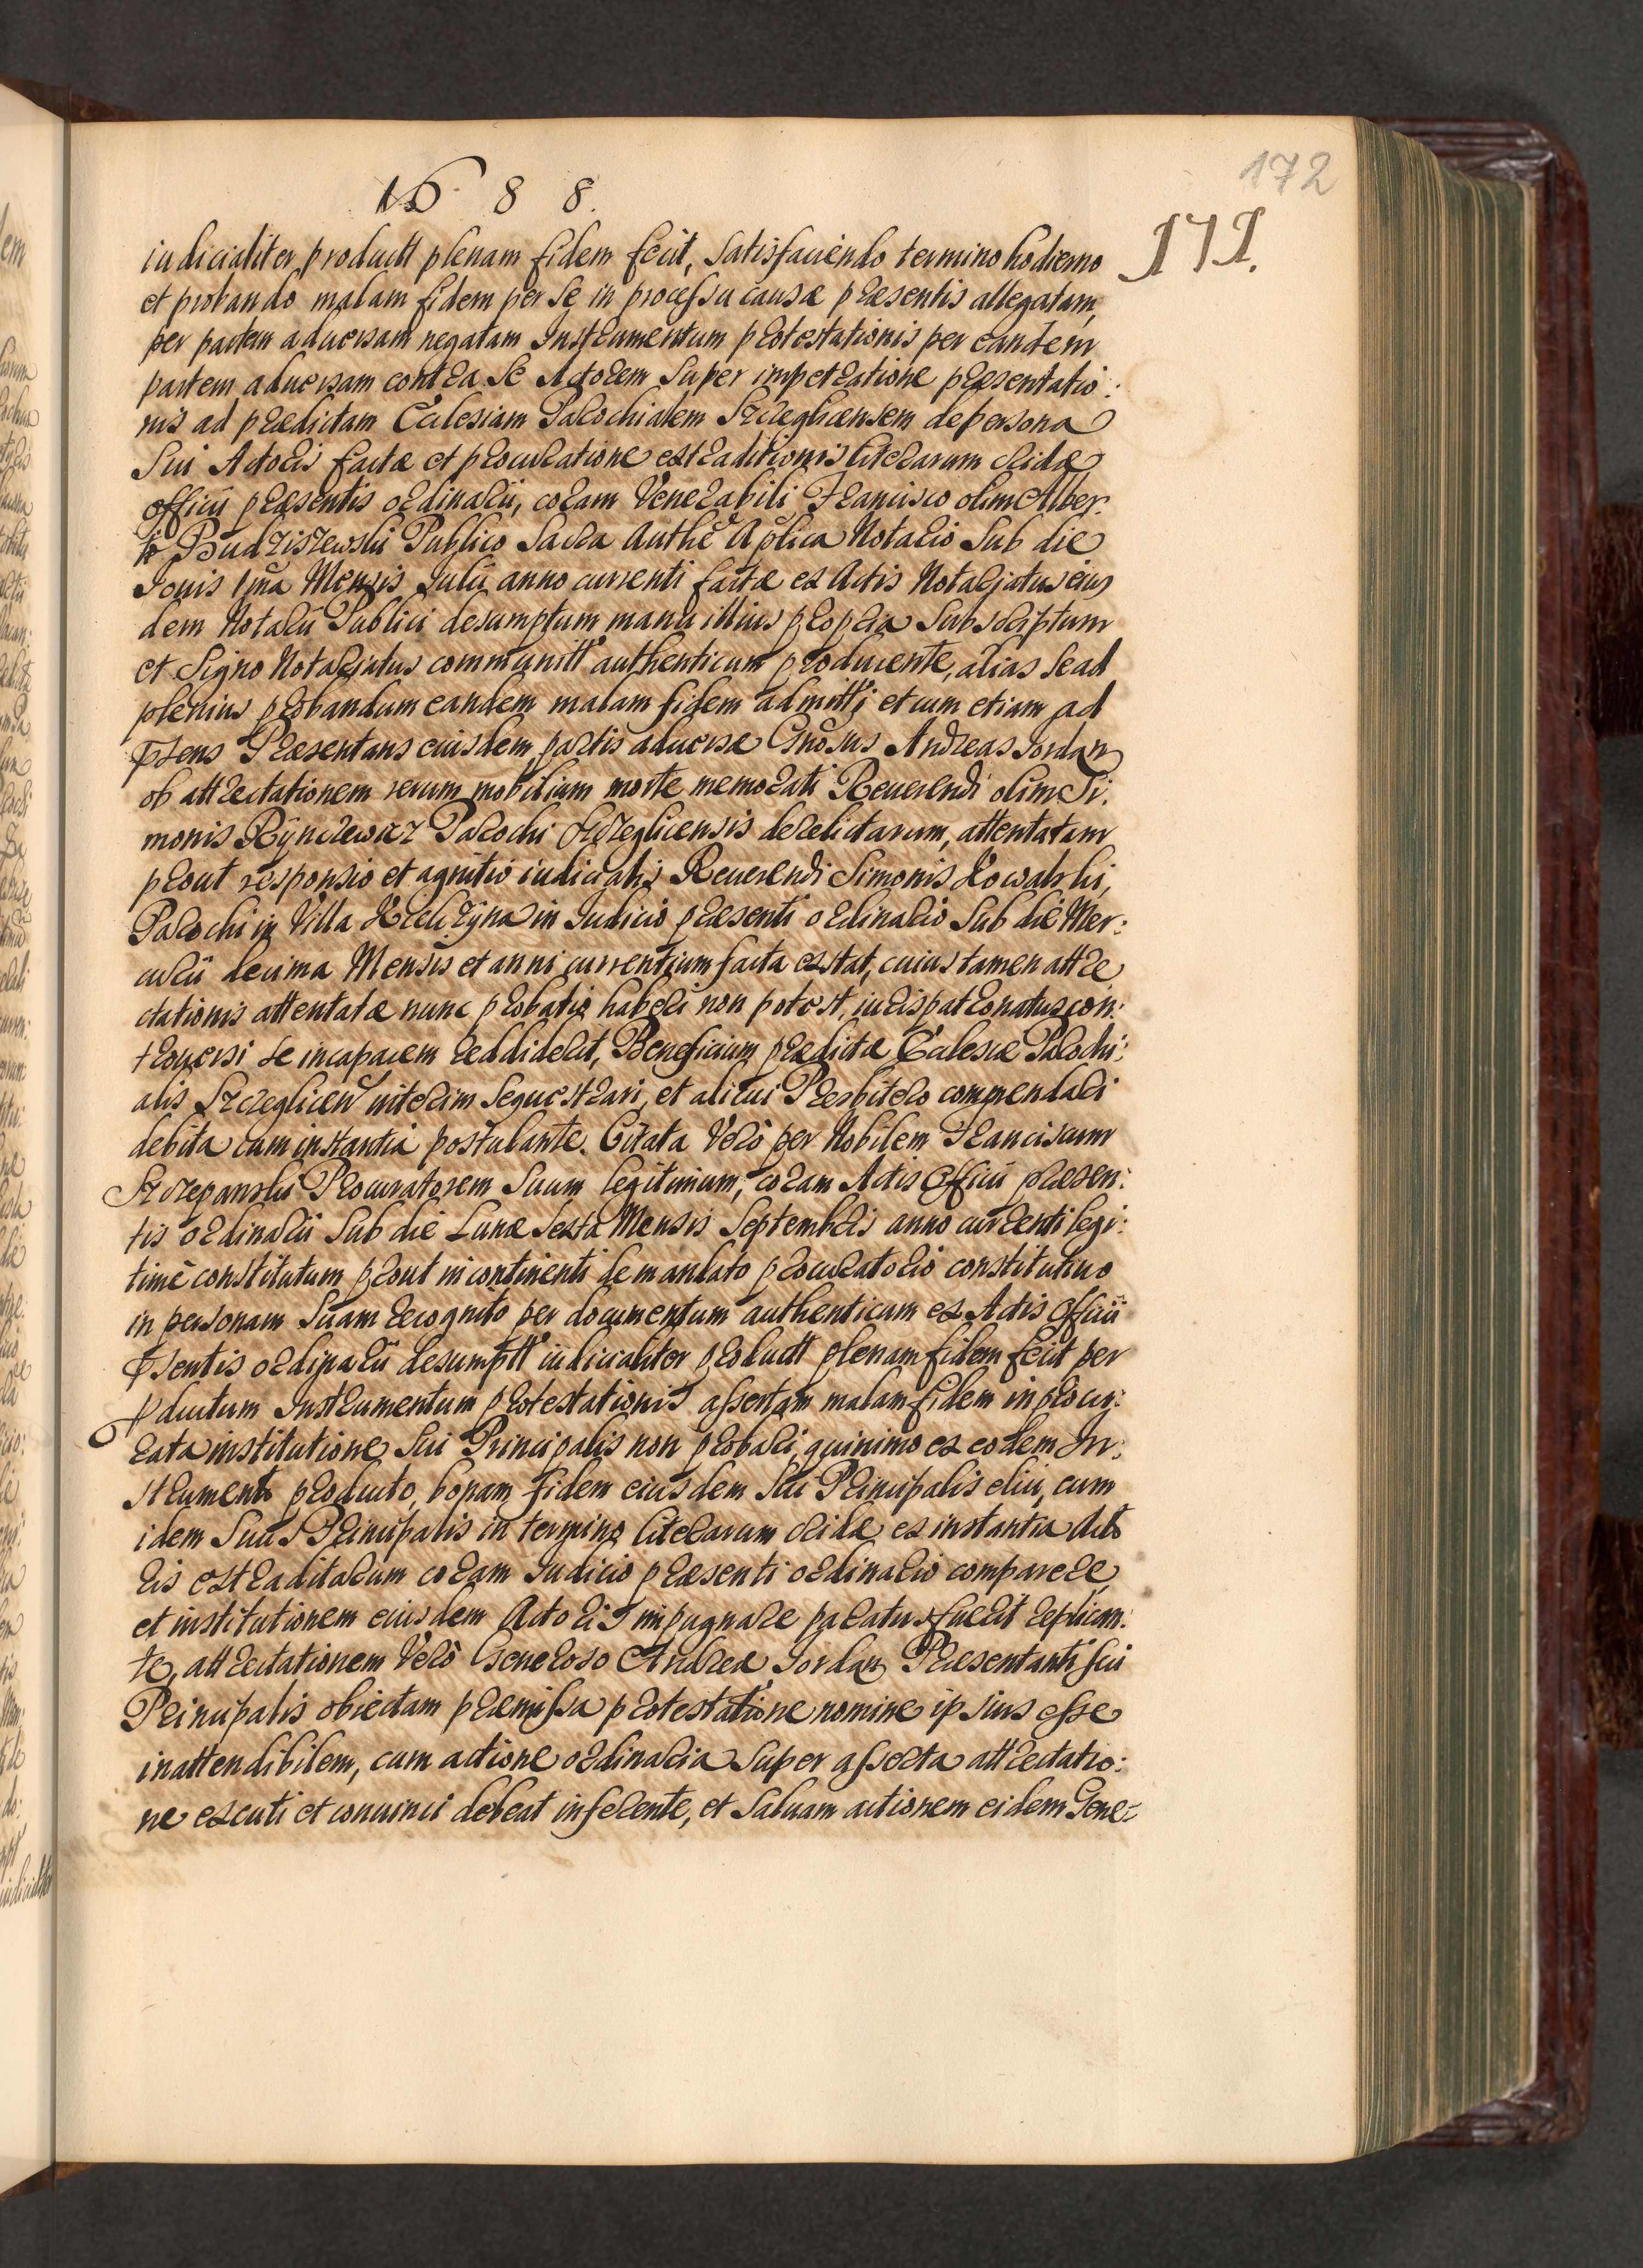 172
1688.
171.
iudicialiter productt plenam fidem fecit, Satisfaciendo termino hodierno
et probando malam fidem per Se in processu causæ præsentis allegatam,
per partem aduersam negatam Instrumentum protestationis per eandem
partem aduersam contra Se Actorem Super impetratione præsentatio:
nis ad prædictam Ecclesiam Parochialem Szczeglicensem de persona
Sui Actoris factæ et procuratione extraditionis literarum cridæ
officij præsentis ordinarij, coram Venerabili Francisco olim Alber:
to Budziszewski Publico Sacra Authe Aplica Notario Sub die
Iouis 1ma Mensis Iulii anno currenti factæ ex Actis Notariatus eius
dem Notarii Publici desumptum manu illius propria Subscriptum
et Signo Notariatus communitt authenticum producente, alias Se ad
plenius probandum eandem malam fidem admitti et cum etiam ad
præsens Præsentans eiusdem partis aduersæ Gnosus Andreas Iordan
ob attrectationem rerum mobilium morte memorati Reuerendi olim Si:
monis Rynczewicz Parochi Szczeglicensis derelictarum, attentatam
prout responsio et agnitio iudicialis Reuerendi Simonis Kowalski,
Parochi in Villa in Iudicio præsenti ordinario Sub die Mer:
curii decima Mensis et anni currentium facta exstat, cuius tamen attre
ctationis attentatæ nunc probatio haberi non potest, iuris patronatus con:
trouersi Se incapacem reddiderit, Beneficium prædictæ Ecclesiæ Parochi:
alis Szczeglicen interim Sequestrari, et alicui Presbitero commendari
debita cum instantia postulante. Citata Vero per Nobilem Franciscum
Szczepanski Procuratorem Suum legitimum, coram Actis Officii præsen:
tis ordinarii Sub die Lunæ Sexta Mensis Septembris anno currenti legi:
time constitutum prout in continenti de mandato procuratorio constitutiuo
in personam Suam recognito per documentum authenticum ex Actis Officii
præsentis ordinarii desumptt iudicialiter productt plenam fidem fecit per
productum Instrumentum protestationis assertam malam fidem in procu:
rata institutione Sui Principalis non probari, quinimo ex eodem In:
strumento producto, bonam fidem eiusdem Sui Principalis elici, cum
idem Suus Principalis in termino literarum cridæ ex instantia Acto
ris extraditarum coram Iudicio præsenti ordinario comparere,
et institutionem eiusdem Actoris impugnare paratus fuerit replican:
te, attrectationem Vero Generoso Andreæ Iordan Præsentanti Sui
Principalis obiectam præmissa protestatione nomine ipsius esse
inattendibilem, cum actione ordinaria Super asserta attrectatio:
ne excuti et conuinci debeat inferente, et Saluam actionem eidem Gene: